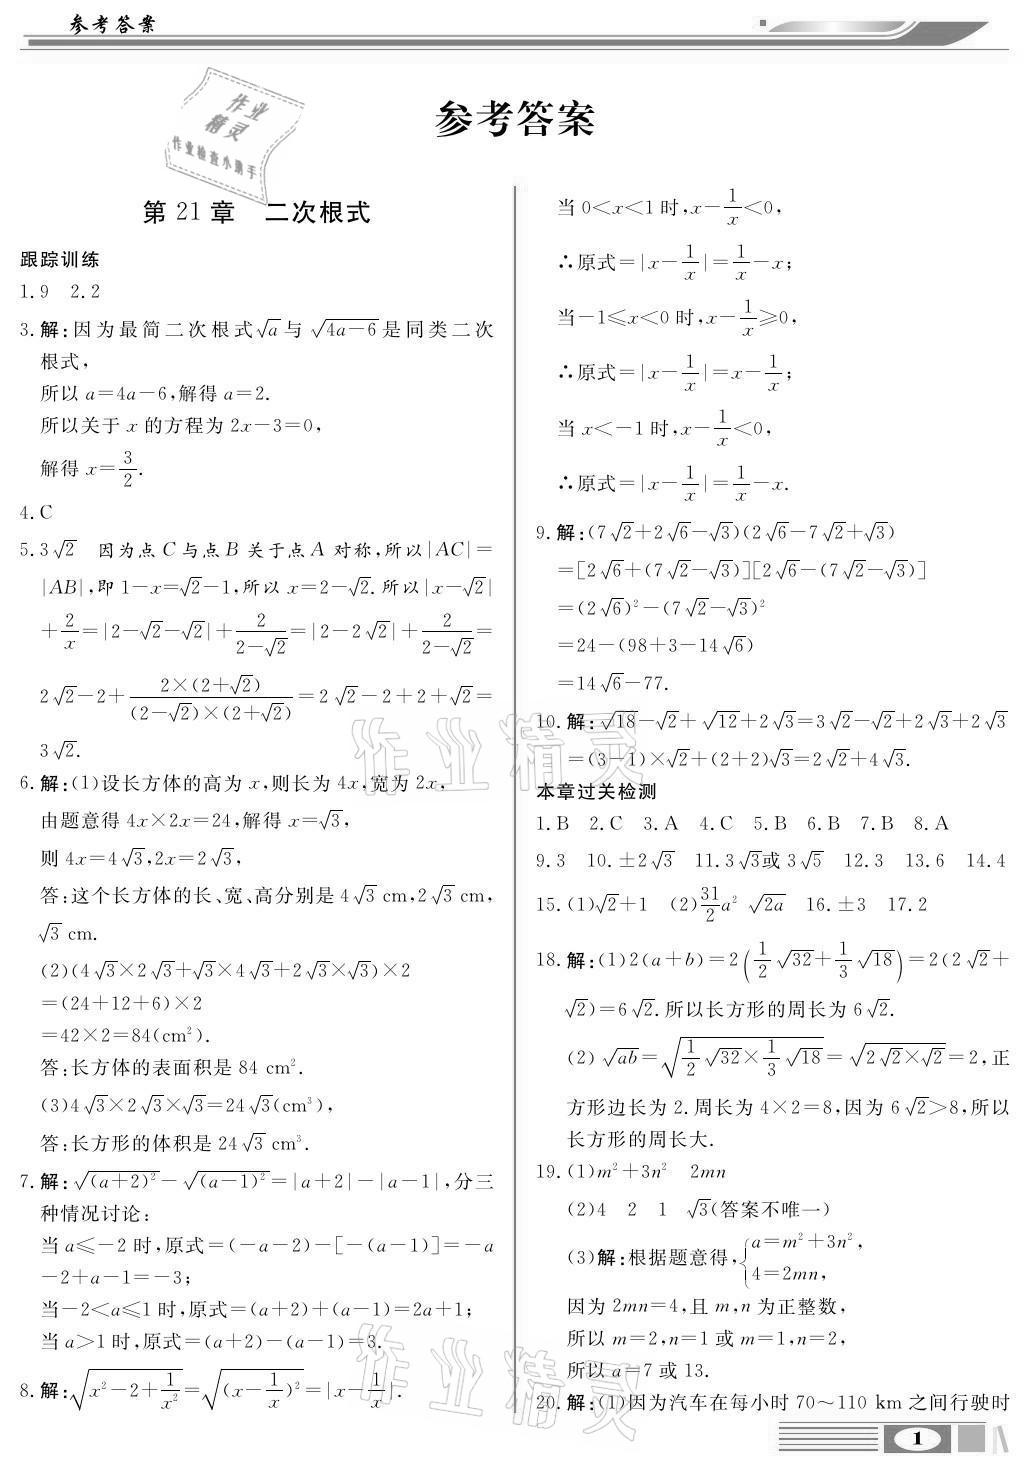 参考答案
参考答案
作业
精灵
作业检查小助手
第 21 章　二次根式
跟踪训练
1. 9　2. 2
3. 解:因为最简二次根式√a与 √(4a−6)是同类二次
根式,
所以 a=4a−6,解得 a=2.
所以关于 x 的方程为 2x−3=0,
解得 x=3/2.
4. C
5. 3√2　因为点 C 与点 B 关于点 A 对称,所以|AC|=
|AB|,即 1−x=√2−1,所以 x=2−√2. 所以|x−√2|
+2/x=|2−√2−√2|+2/(2−√2)=|2−2√2|+2/(2−√2)=
2√2−2+(2×(2+√2))/((2−√2)×(2+√2))=2√2−2+2+√2=
3√2.
6. 解:(1)设长方体的高为 x,则长为 4x,宽为 2x,
由题意得 4x×2x=24,解得 x=√3,
则 4x=4√3,2x=2√3,
答:这个长方体的长、宽、高分别是 4√3 cm,2√3 cm,
√3 cm.
(2)(4√3×2√3+√3×4√3+2√3×√3)×2
=(24+12+6)×2
=42×2=84(cm²).
答:长方体的表面积是 84 cm².
(3)4√3×2√3×√3=24√3(cm³),
答:长方形的体积是 24√3 cm³.
7. 解:√((a+2)²)−√((a−1)²)=|a+2|−|a−1|,分三
种情况讨论:
当 a≤−2 时,原式=(−a−2)−[−(a−1)]=−a
−2+a−1=−3;
当−2<a≤1 时,原式=(a+2)+(a−1)=2a+1;
当 a>1 时,原式=(a+2)−(a−1)=3.
8. 解:√(x²−2+1/x²)=√((x−1/x)²)=|x−1/x|.
当 0<x<1 时,x−1/x<0,
∴原式=|x−1/x|=1/x−x;
当−1≤x<0 时,x−1/x≥0,
∴原式=|x−1/x|=x−1/x;
当 x<−1 时,x−1/x<0,
∴原式=|x−1/x|=1/x−x.
9. 解:(7√2+2√6−√3)(2√6−7√2+√3)
=[2√6+(7√2−√3)][2√6−(7√2−√3)]
=(2√6)²−(7√2−√3)²
=24−(98+3−14√6)
=14√6−77.
10. 解:√18−√2+√12+2√3=3√2−√2+2√3+2√3
=(3−1)×√2+(2+2)√3=2√2+4√3.
本章过关检测
1. B　2. C　3. A　4. C　5. B　6. B　7. B　8. A
9. 3　10. ±2√3　11. 3√3或 3√5　12. 3　13. 6　14. 4
15. (1)√2+1　(2)31/2a²　√(2a)　16. ±3　17. 2
18. 解:(1)2(a+b)=2(1/2√32+1/3√18)=2(2√2+
√2)=6√2. 所以长方形的周长为 6√2.
(2)√(ab)=√(1/2√32×1/3√18)=√(2√2×√2)=2,正
方形边长为 2. 周长为 4×2=8,因为 6√2>8,所以
长方形的周长大.
19. (1)m²+3n²　2mn
(2)4　2　1　√3(答案不唯一)
(3)解:根据题意得,{a=m²+3n²,
4=2mn,
因为 2mn=4,且 m,n 为正整数,
所以 m=2,n=1 或 m=1,n=2,
所以 a=7 或 13.
20. 解:(1)因为汽车在每小时 70～110 km 之间行驶时
作业精灵
作业精灵
1